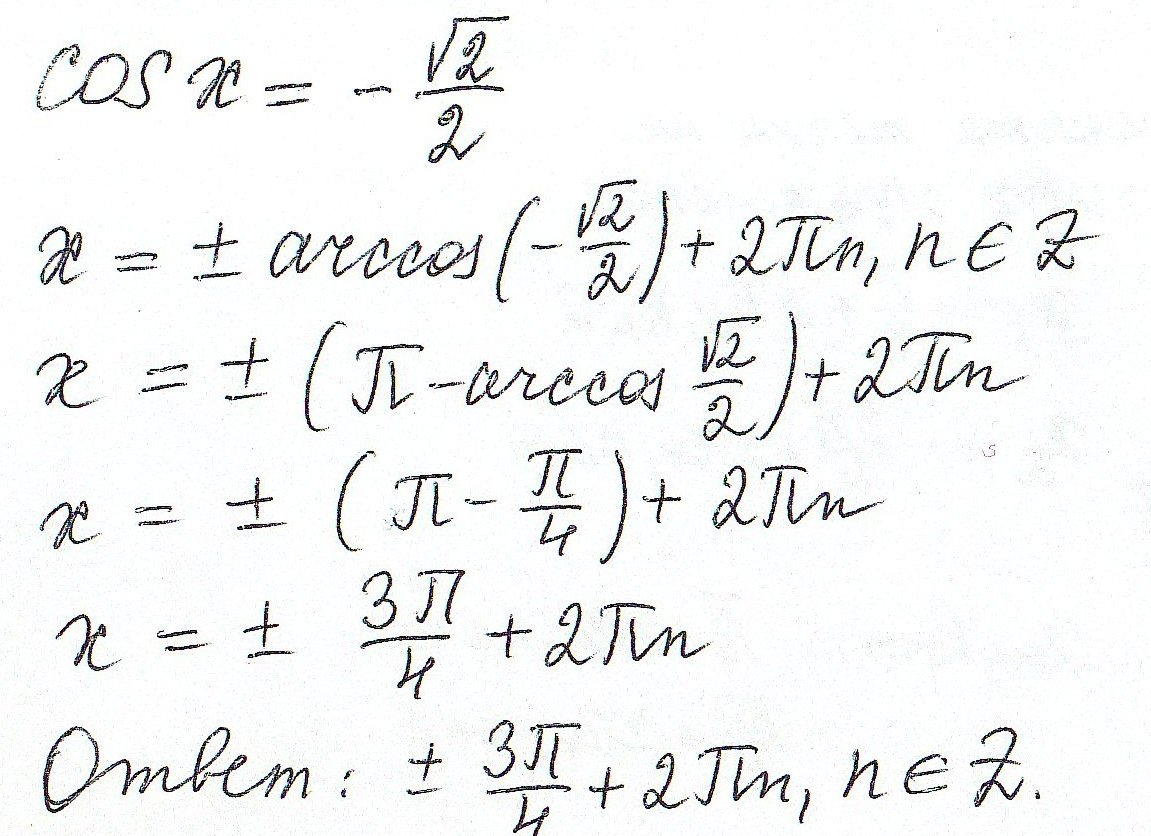 cos x = - √2/2
x = ± arccos(-√2/2) + 2πn, n ∈ Z
x = ± (π - arccos √2/2) + 2πn
x = ± (π - π/4) + 2πn
x = ± 3π/4 + 2πn
Ответ: ± 3π/4 + 2πn, n ∈ Z.